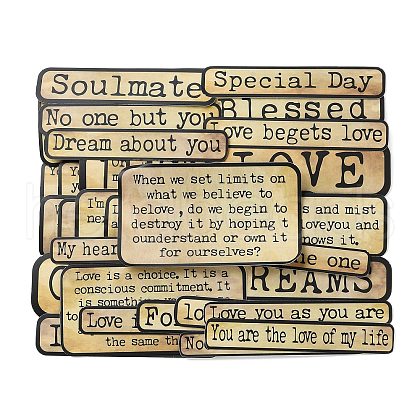 Soulmate
Special Day
No one but you
Blessed
Love begets love
Dream about you
LOVE
When we set limits on
what we believe to
belove , do we begin to
destroy it by hoping t
ounderstand or own it
for ourselves?
I'm
and mist
loveyou and
nows it.
My hear
the one
Love is a choice. It is a
conscious commitment. It
is something
REAMS
Love i
Fo
lo
Love you as you are
the same th
No
You are the love of my life